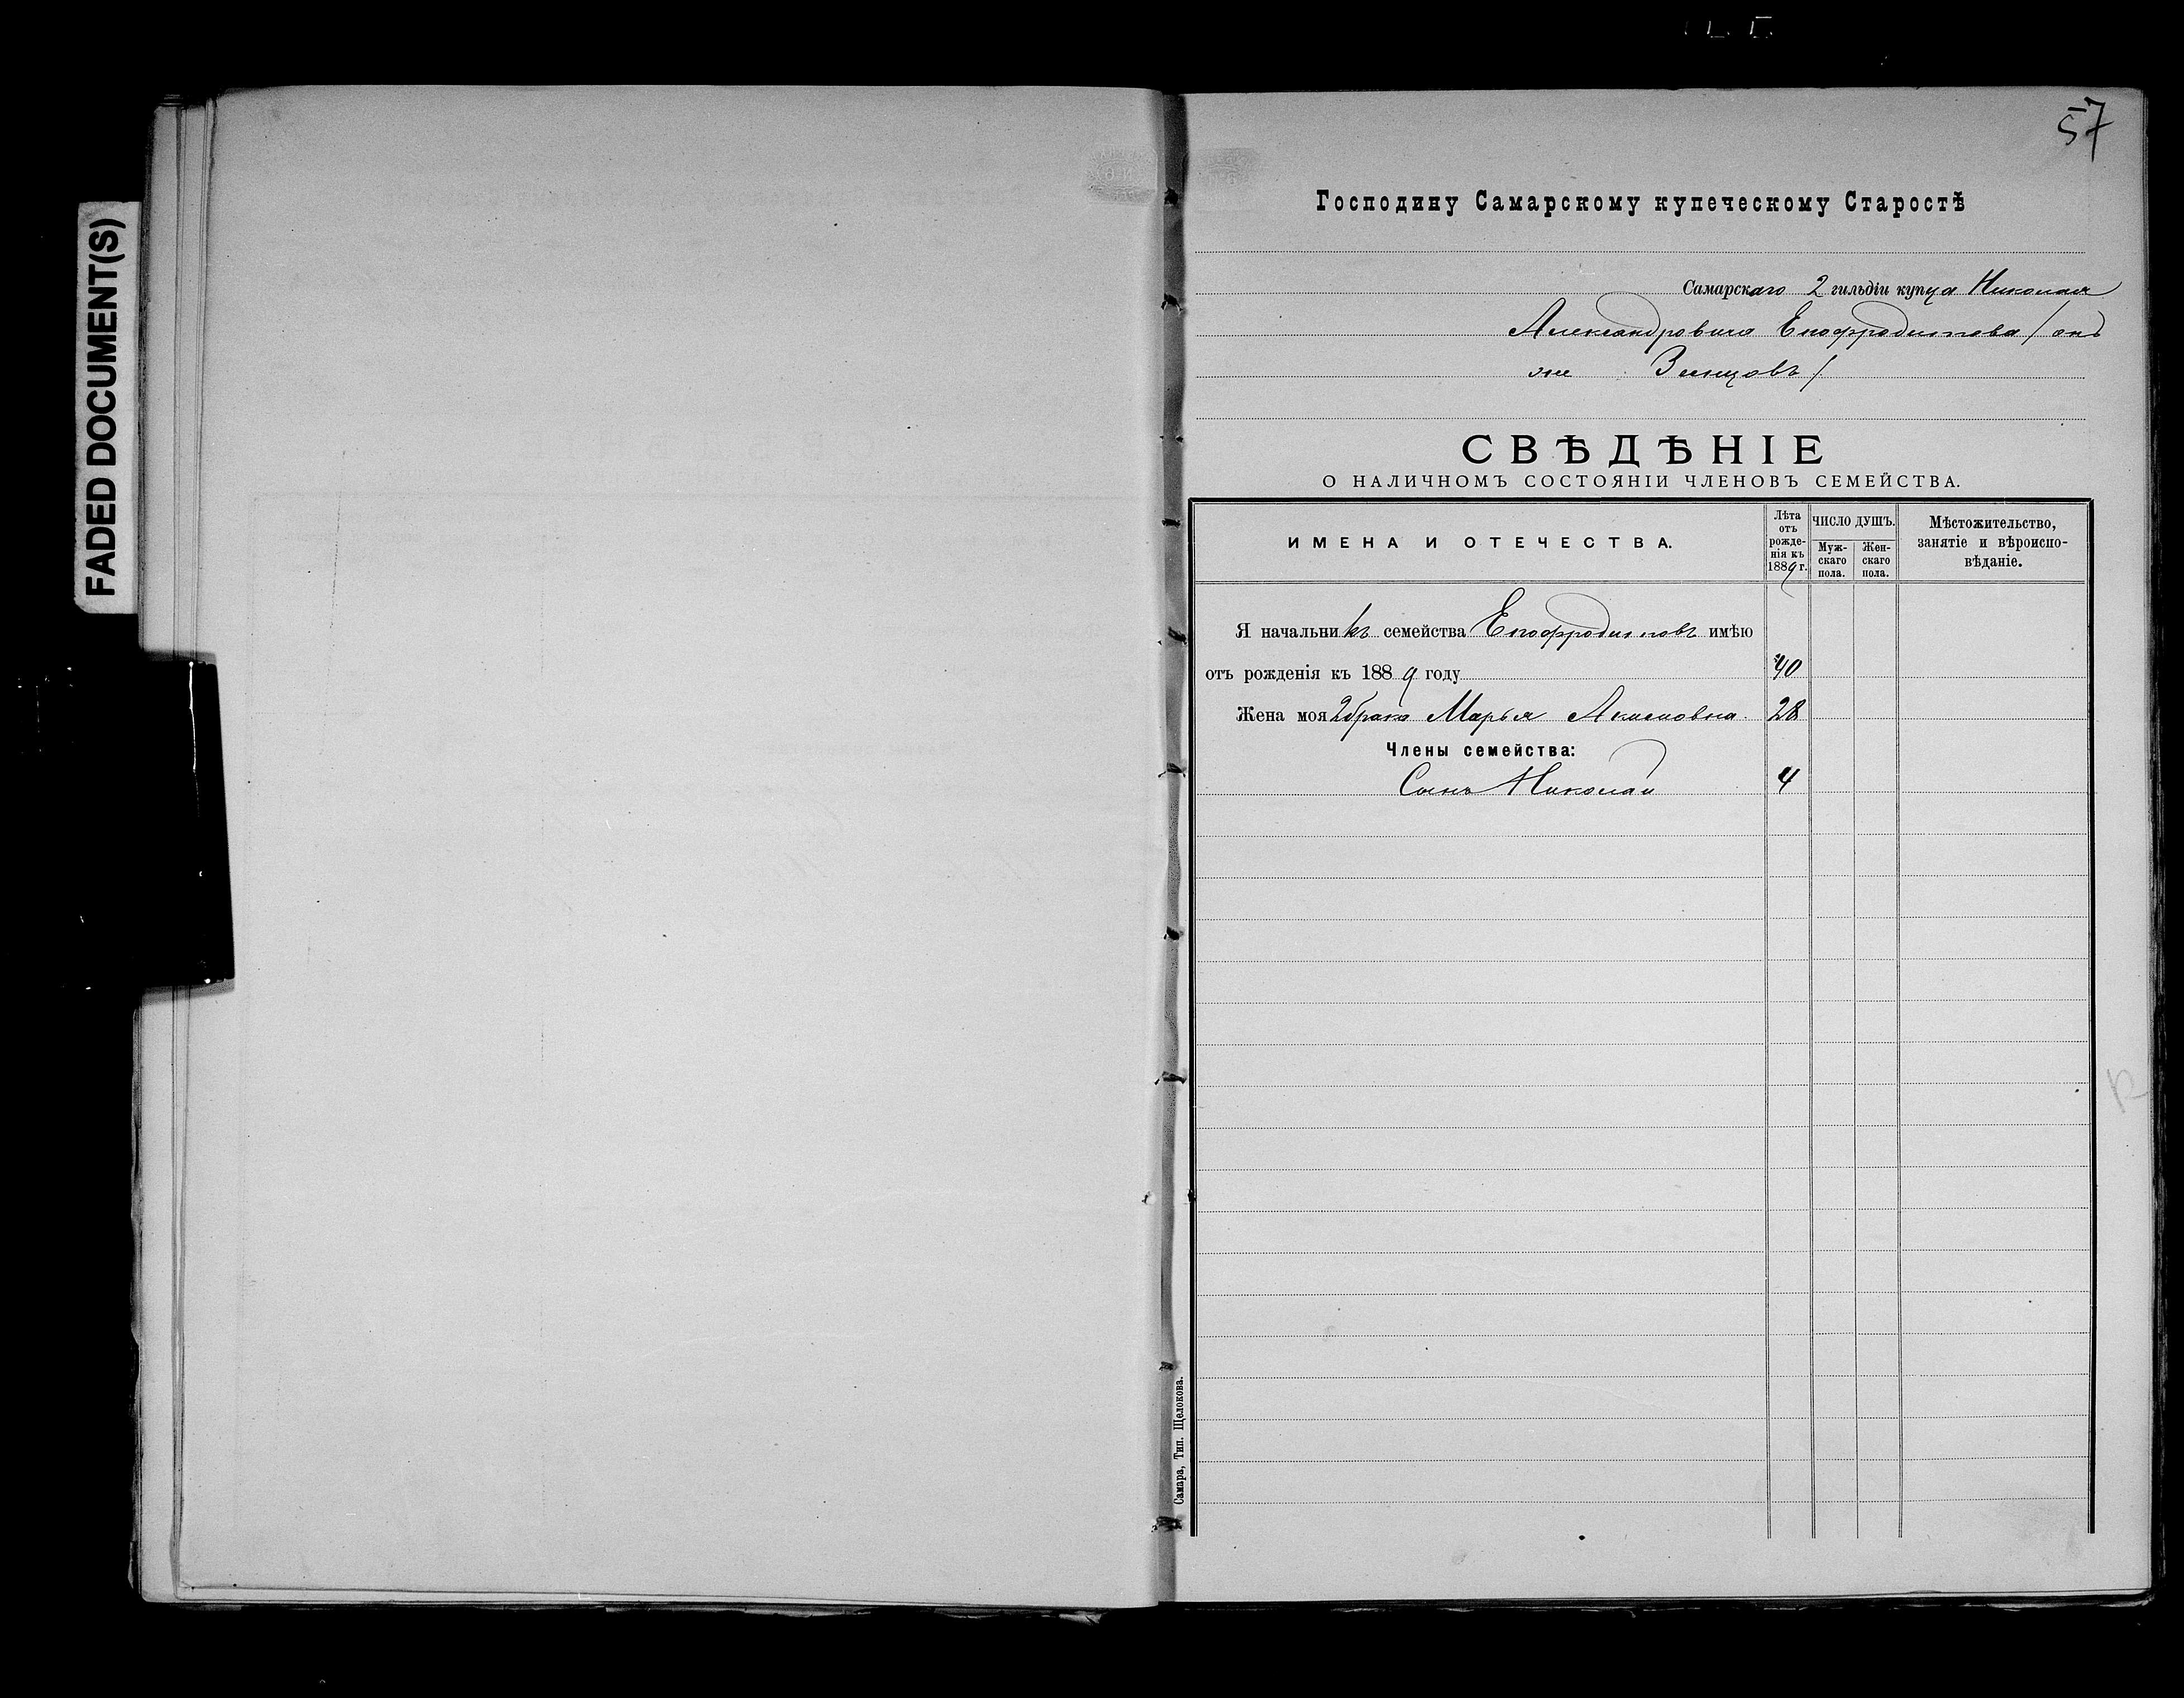 57
Господину Самарскому купеческому Старостѣ
Самарскаго 2 гильдіи купца Николая
Александровича Епофродитова / онъ
же Зенцовъ /
СВѢДѢНІЕ
О НАЛИЧНОМЪ СОСТОЯНІИ ЧЛЕНОВЪ СЕМЕЙСТВА.
ИМЕНА И ОТЕЧЕСТВА.
Лѣта
отъ
рожде-
нія къ
1889 г.
ЧИСЛО ДУШЪ.
Муж-
скаго
пола.
Жен-
скаго
пола.
Мѣстожительство,
занятіе и вѣроиспо-
вѣданіе.
Я начальникъ семейства Епофродитовъ имѣю
отъ рожденія къ 1889 году 40
Жена моя 2 брака Марья 28
Члены семейства:
Сынъ Николай 4
Самара, Тип. Щелокова.
FADED DOCUMENT(S)